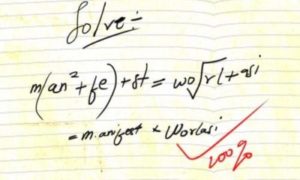 Solve:-
m(an² + fe) + st = wo√rl + asi
= m.anifest × Worlasi
100%